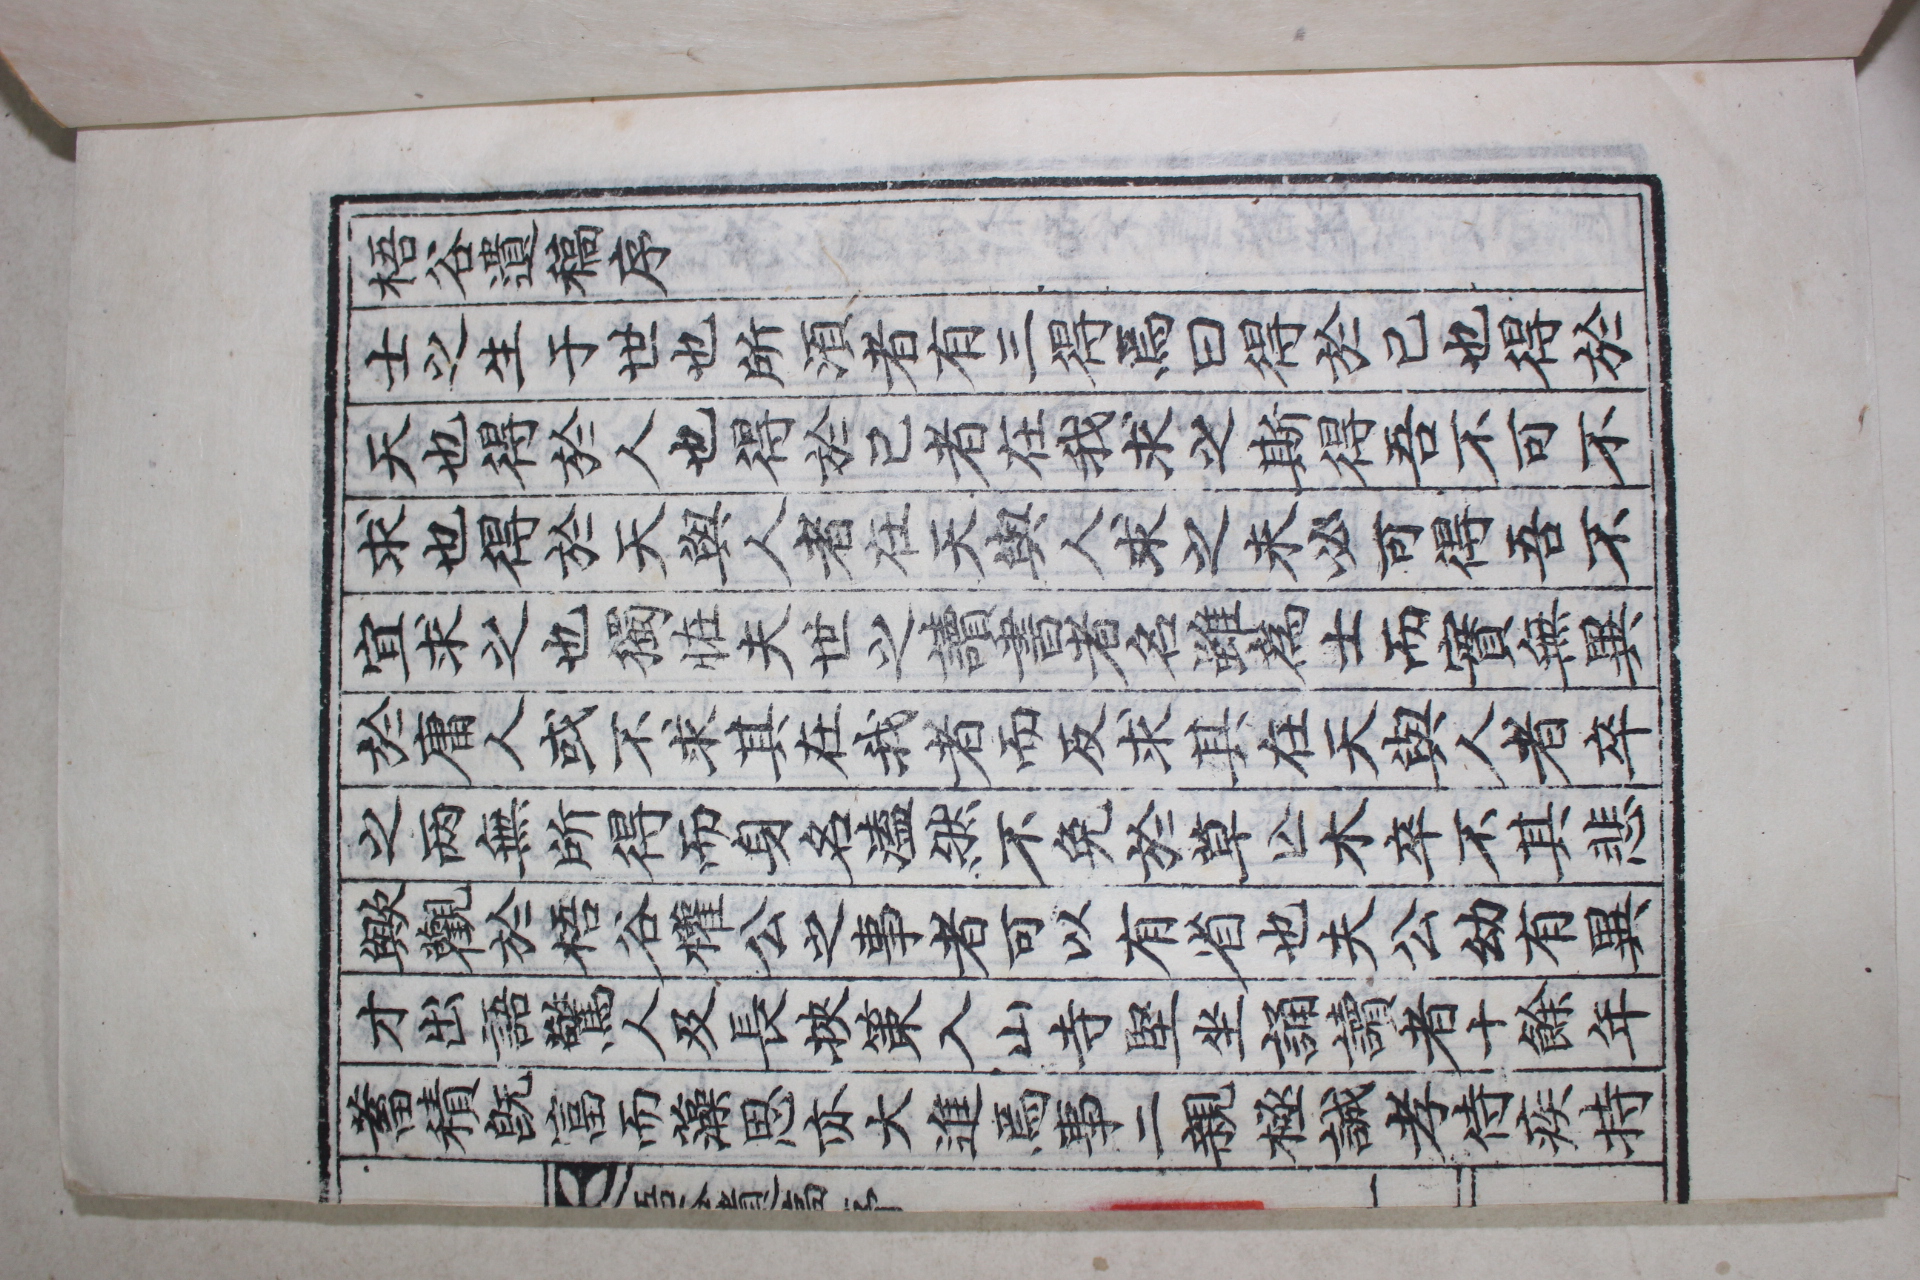 梧谷遺稿序
士之生于世也所須者有三得焉曰得於己也得於
天也得於人也得於己者在我求之斯得吾不可不
求也得於天與人者在天與人求之未必可得吾不
宜求之也獨怪夫世之讀書者名雖爲士而實無異
於庸人或不求其在我者而反求其在天與人者卒
之兩無所得而身名溘然不免於草亡木卒不其悲
歟觀於梧谷權公之事者可以有省也夫公幼有異
才出語驚人及長挾策入山寺堅坐誦讀者十餘年
蓄積旣富而藻思亦大進焉事二親極誠孝侍疾持
梧谷遺稿序
一